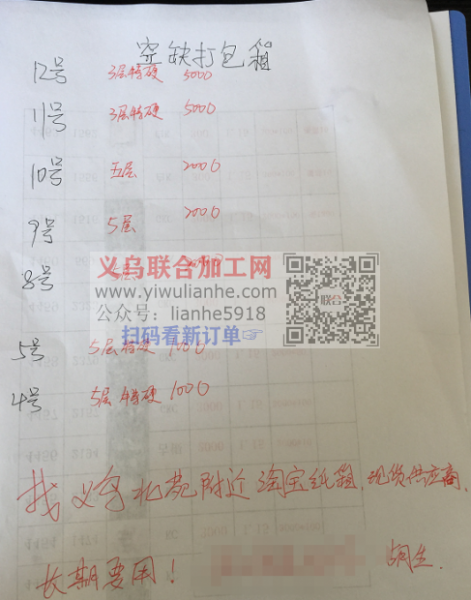 空缺打包箱
12号 3层特硬 5000
11号 3层特硬 5000
10号 五层 2000
9号 5层 2000
8号
义乌联合加工网
www.yiwulianhe.com
公众号: lianhe5918
扫码看新订单👉
联合
5号 5层特硬 1000
4号 5层特硬 1000
找义乌北苑附近淘宝纸箱.现货供应商.
长期要用!
胡生